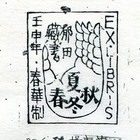 EX-LIBRIS
郁田
藏書
壬申年·春華制
夏
春 秋
冬